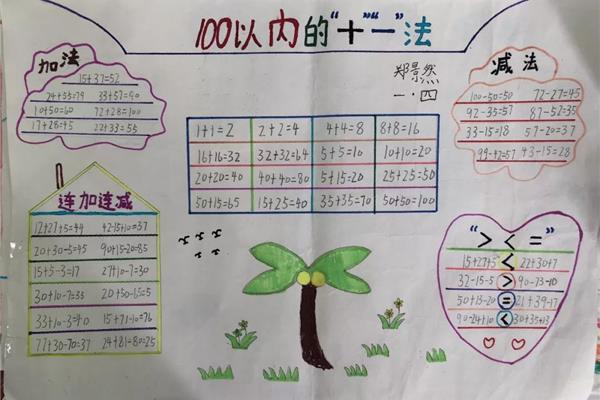 100以内的"+""一"法
郑景然
一·四
加法
15+37=52
24+55=79 33+57=90
10+50=60 72+28=100
17+28=45 22+33=55
减法
100-50=50 72-27=45
92-35=57 87-52=35
33-15=18 57-20=37
99-42=57 43-15=28
1+1=2 2+2=4 4+4=8 8+8=16
16+16=32 32+32=64 5+5=10 10+10=20
20+20=40 40+40=80 5+15=20 25+25=50
50+15=65 15+25=40 35+35=70 50+50=100
连加连减
17+27+5=44 42-15+10=37
20+30-5=45 90+15-20=85
15+5-3=17 27+10-7=30
30+10-7=33 20+50-65=5
33+10-3=40 15+71-10=76
77+30-70=37 24+81-80=25
">< ="
15+27+5 < 22+30+7
32-15-5 > 90-73-10
50+15-20 = 21+39-17
90-24+10 < 30+35+13